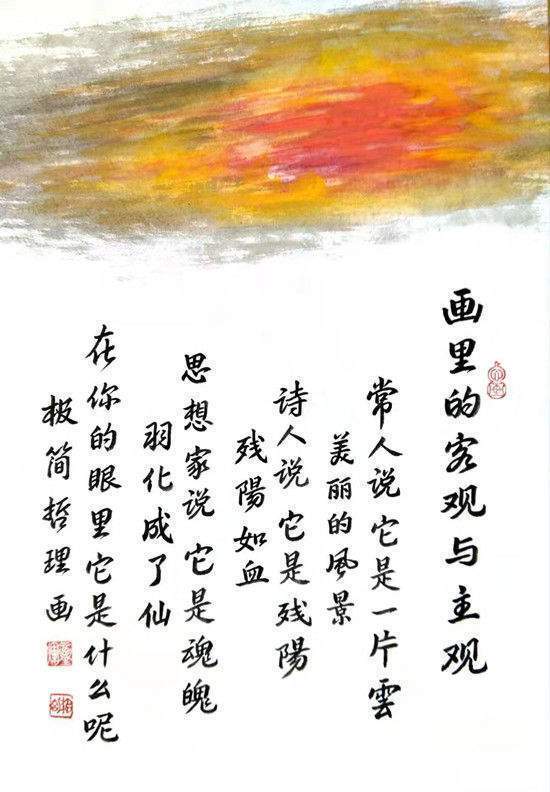 画里的客观与主观
常人说它是一片雲
美丽的風景
诗人说它是残陽
残陽如血
思想家说它是魂魄
羽化成了仙
在你的眼里它是什么呢
极简哲理画